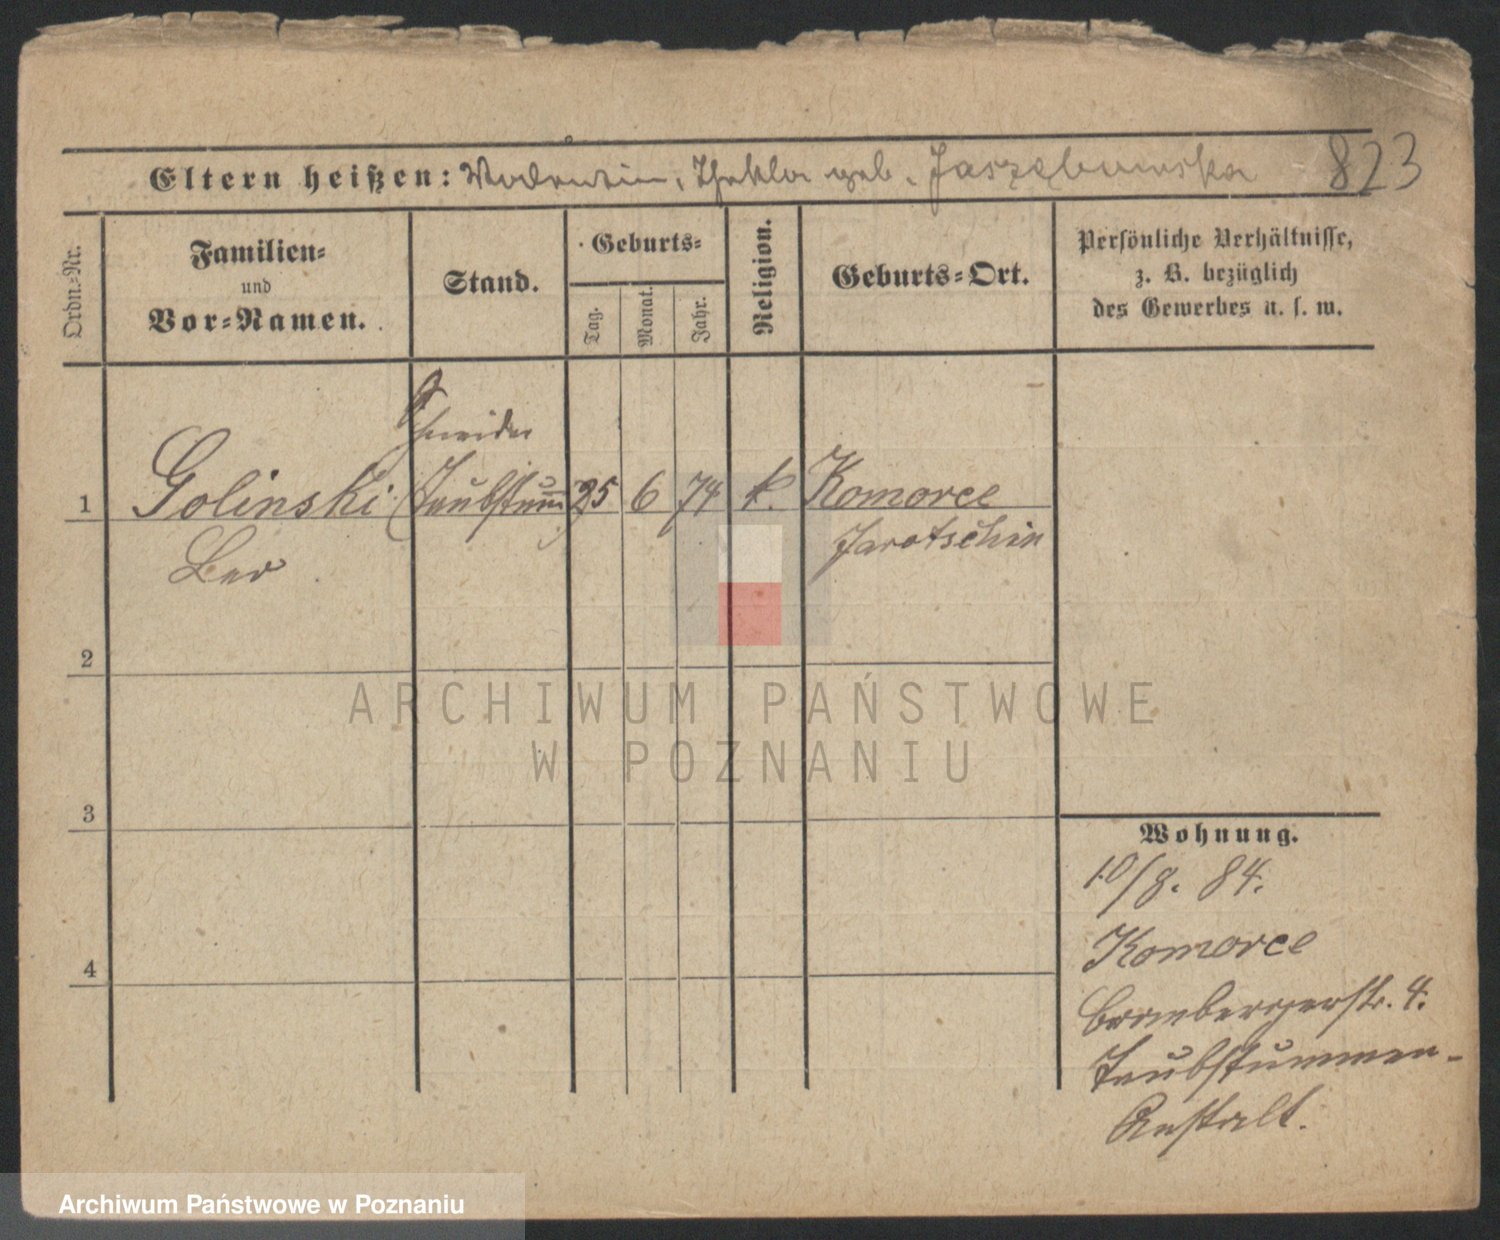 Eltern heißen: Thekla geb. Jaszgbowska 823
Ordn.-Nr.
Familien-
und
Vor-Namen.
Stand.
Geburts-
Tag.
Monat.
Jahr.
Religion.
Geburts-Ort.
Persönliche Verhältnisse,
z. B. bezüglich
des Gewerbes u. s. w.
Schneider
1 Golinski (taubstumm) 25 6 74 k. Komorce
Jarotschin
Leo
2
3
4
Wohnung.
10/8. 84.
Komorce
Brombergerstr. 4.
Taubstummen-
Anstalt.
ARCHIWUM PAŃSTWOWE
W POZNANIU
Archiwum Państwowe w Poznaniu